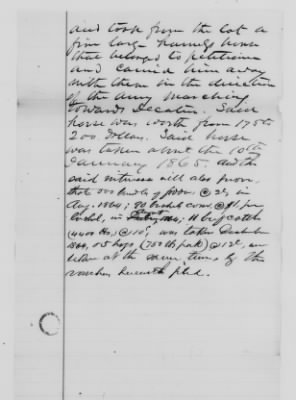 and took from the lot a
fine large harness horse
that belonged to petitioner
and carried him away
with them in the direction
of the army marching
towards Decatur. Said
horse was worth from 175 to
200 dollars. Said horse
was taken about the 10th
January 1865. And the
said witness will also prove
that 200 of @ 2½ in
Aug. 1864; 90 bushels corn @ $1 per
bushel, in 1864; 11 beef cattle
(4400 lbs) @ 10¢, was taken
1864, 5 hogs (750 lbs pork) @ 12¢,
taken at the same time, by the
vouchers herewith filed.